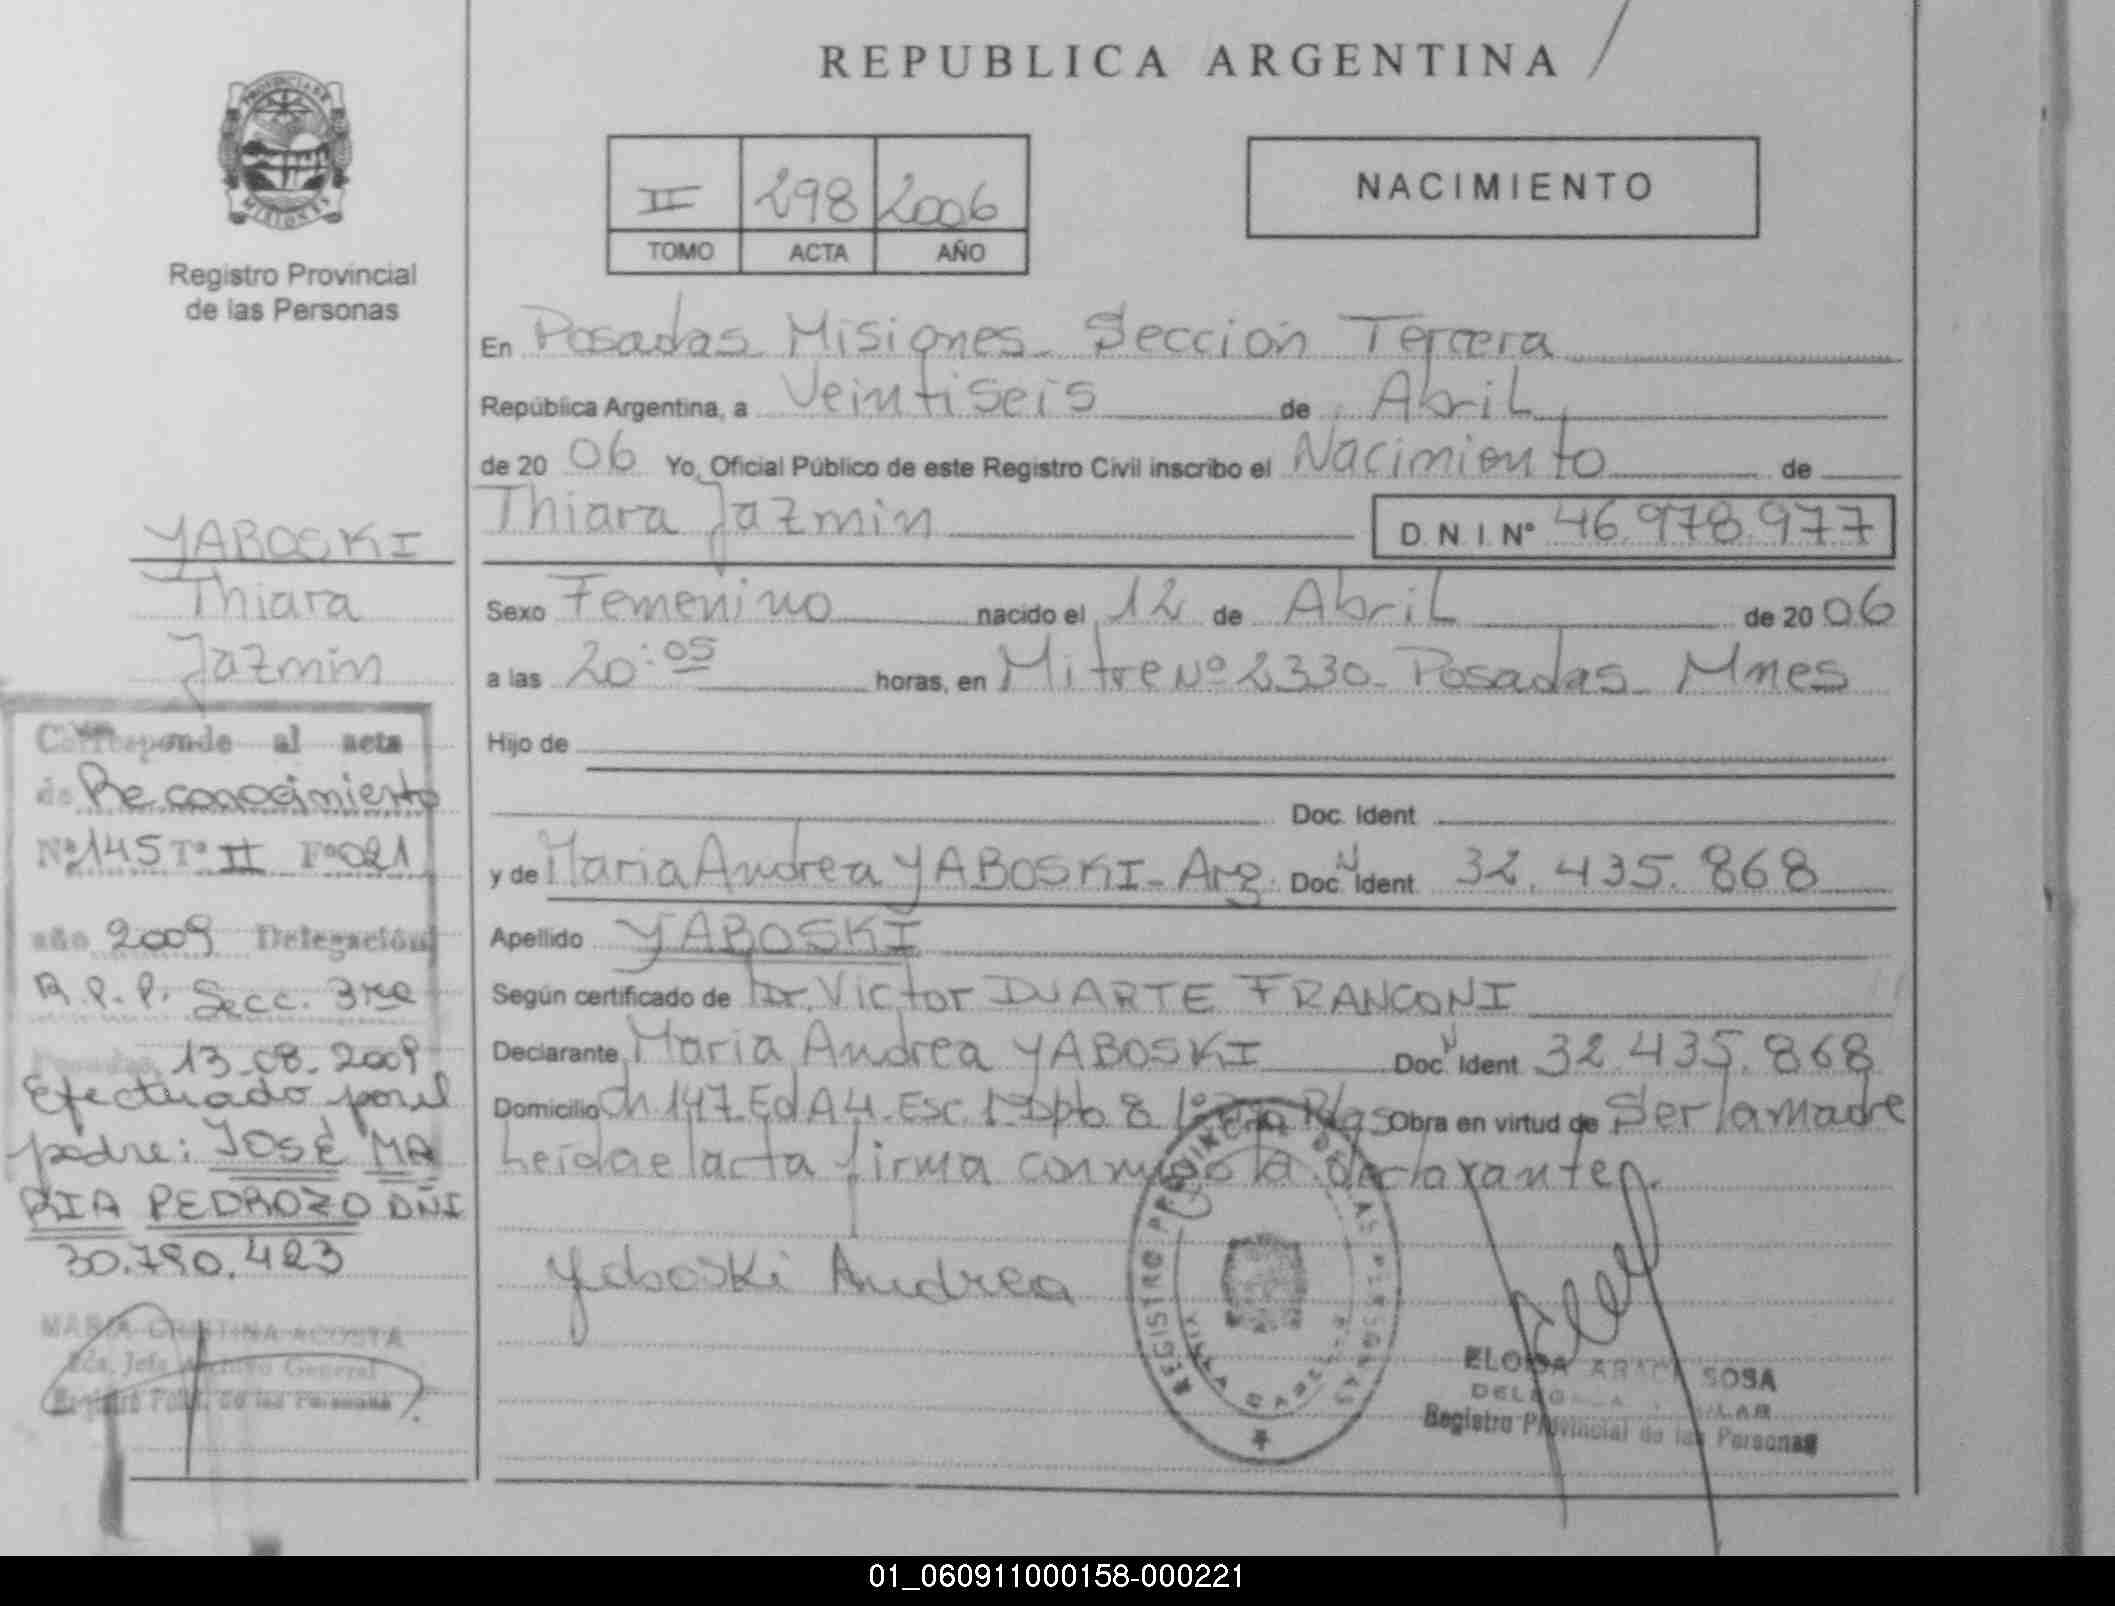 REPUBLICA ARGENTINA
PROVINCIA DE
MISIONES
Registro Provincial
de las Personas
II 298 2006
TOMO ACTA AÑO
NACIMIENTO
En Posadas Misiones Sección Tercera
República Argentina, a Veintiseis de Abril
de 2006 Yo, Oficial Público de este Registro Civil inscribo el Nacimiento de
Thiara Jazmin D.N.I. Nº 46.978.977
Sexo Femenino nacido el 12 de Abril de 2006
a las 20:05 horas, en Mitre Nº 2330 Posadas Mnes
Hijo de
Doc. Ident
y de Maria Andrea YABOSKI - Arg. Doc. N Ident 32.435.868
Apellido YABOSKI
Según certificado de Dr. Victor DUARTE FRANCONI
Declarante Maria Andrea YABOSKI Doc. N Ident 32.435.868
Domicilio Ch 147 Ed A4 Esc. 1 Dpto 8 Obra en virtud de Ser la madre
Leída el acta firma conmigo la declarante.
Yaboski Andrea
REGISTRO PROVINCIAL DE LAS PERSONAS
ELOISA SOSA
Registro Provincial de las Personas
YABOSKI
Thiara
Jazmin
Corresponde al acta
de Reconocimiento
Nº 145 Tº II Fº 021
año 2009 Delegación
R.P.P. Secc. 3ra
Posadas, 13-08-2009
Efectuado por el
padre: JOSÉ MA
RIA PEDROZO DNI
30.790.423
MARIA CRISTINA ACOSTA
Jefa Archivo General
de las Personas
01_060911000158-000221